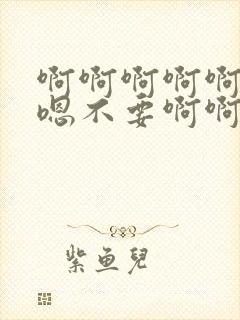 啊啊啊啊啊
嗯不要啊啊
紫鱼儿